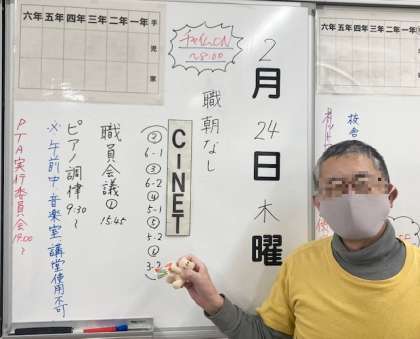 2
月
24
日
木
曜
チャイムON
~8:00
職朝なし
CiNET
②
6-1
③
6-2
④
5-1
⑤
5-2
⑥
3-2
職員会議①
15.45
ピアノ調律 9:30~
※午前中、音楽室、講堂使用不可
PTA実行委員会 19:00~
六年 五年 四年 三年 二年 一年
六年 五年 四年 三年 二年